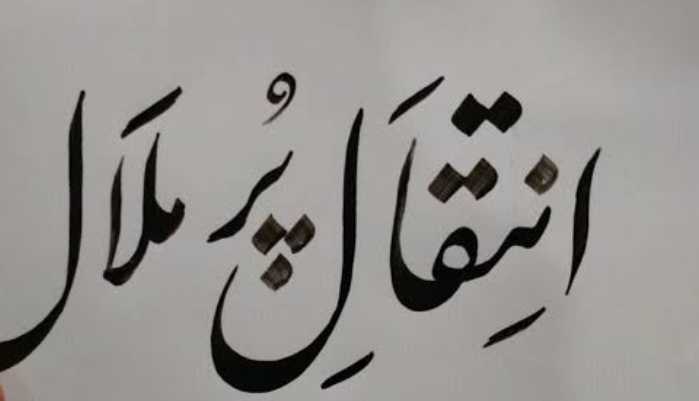 اِنتقَالِ پُر ملَال